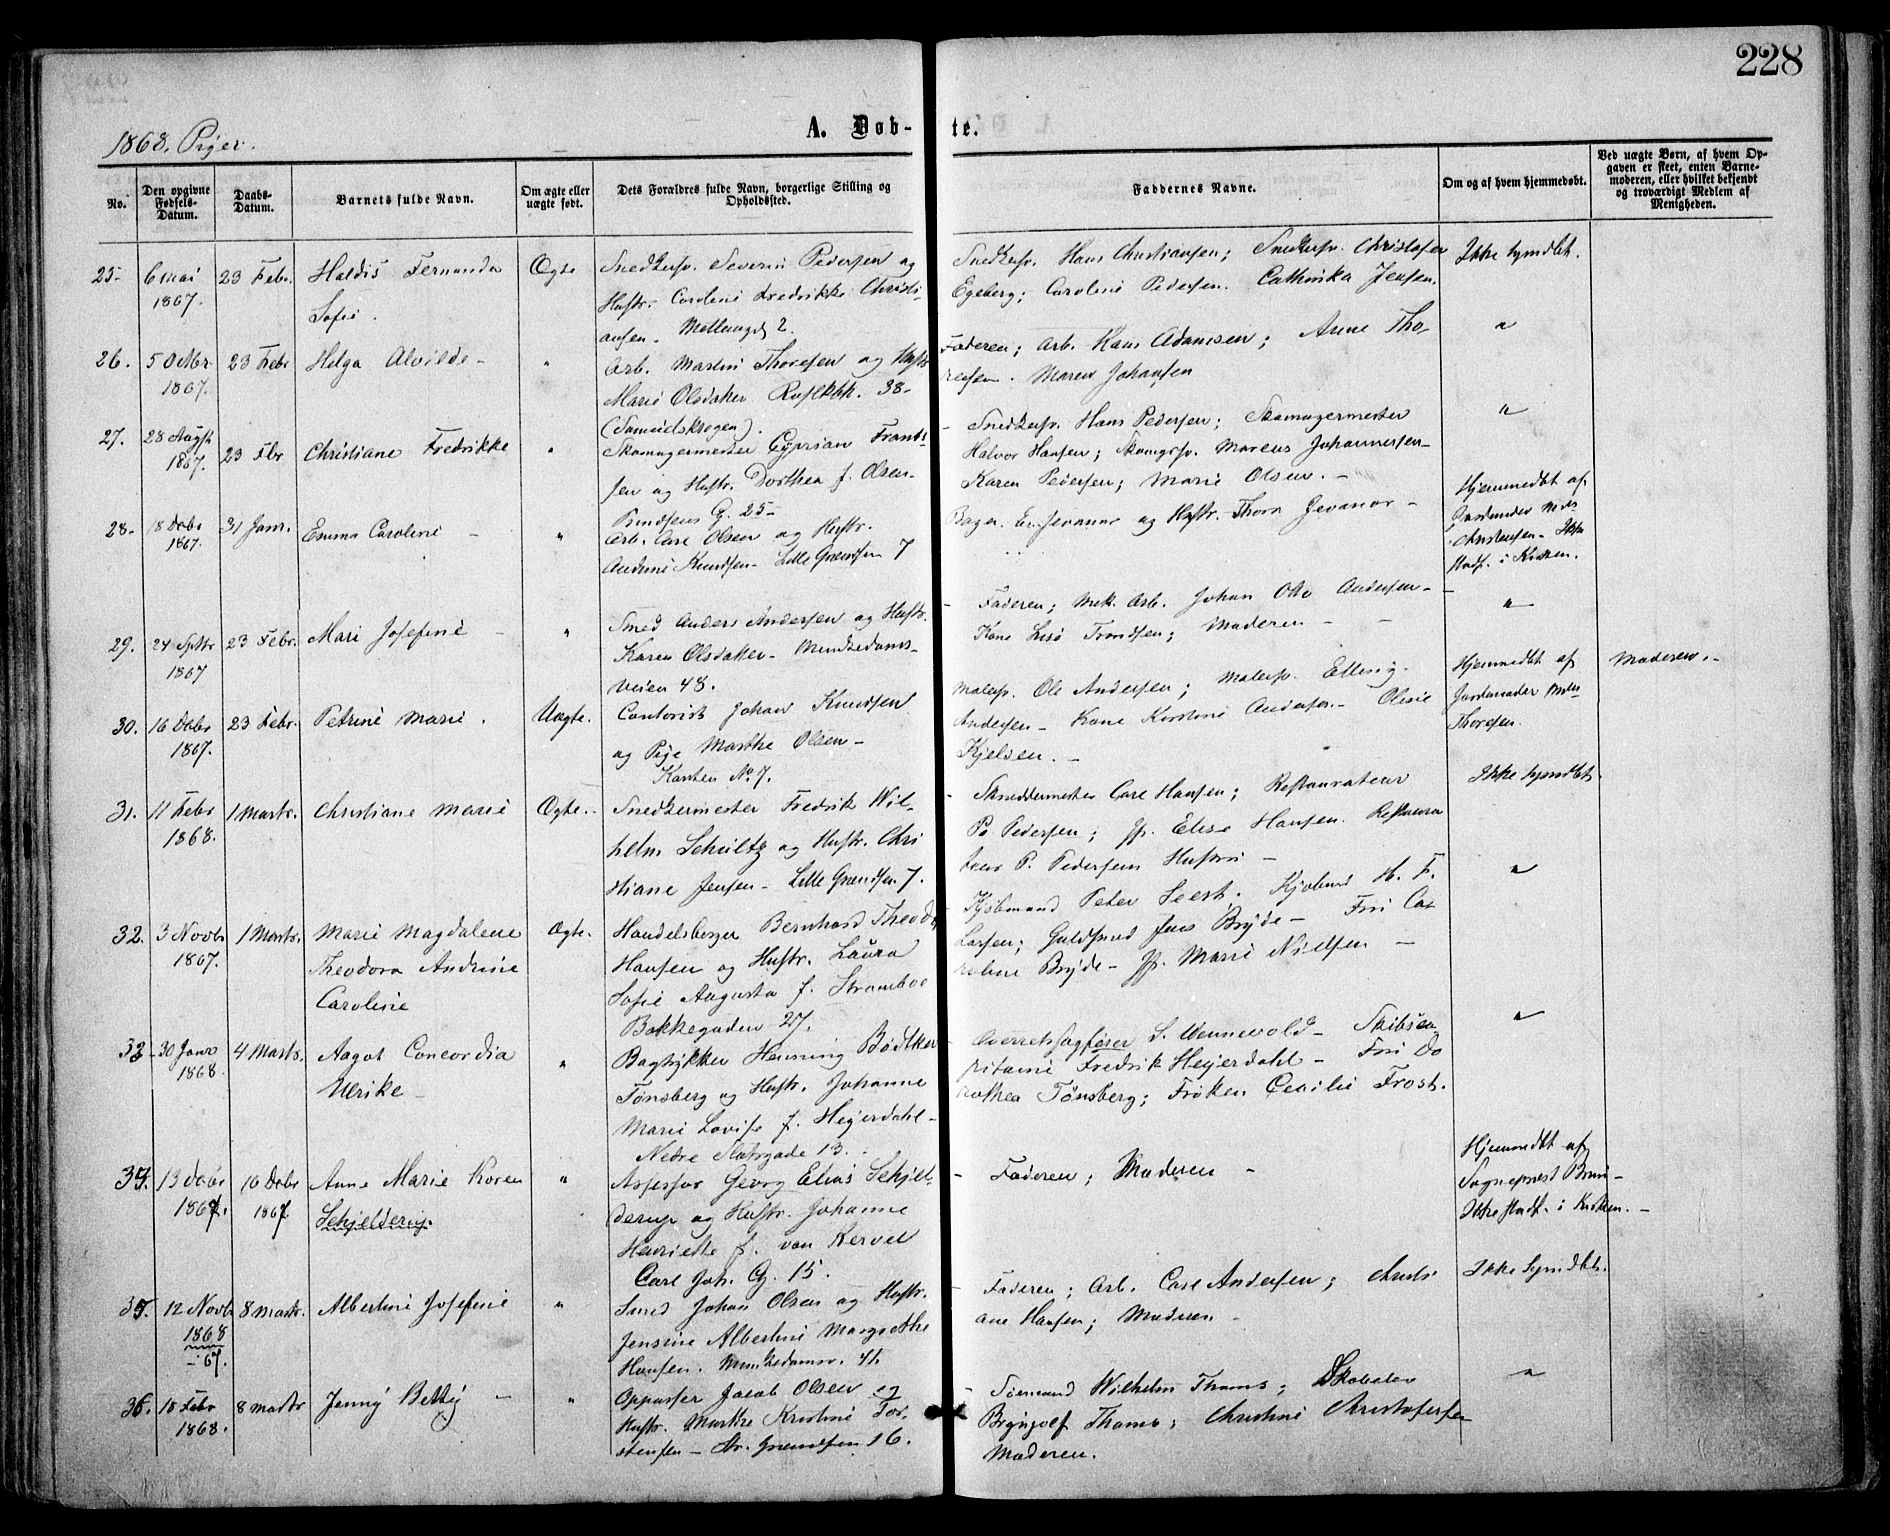 228
A. Døb-te.
1868. Piger.
No.
Den opgivne Fødsels-Datum.
Daabs-Datum.
Barnets fulde Navn.
Om ægte eller uægte født.
Dets Forældres fulde Navn, borgerlige Stilling og Opholdssted.
Faddernes Navne.
Om og af hvem hjemmedøbt.
Ved uægte Børn, af hvem Opgaven er skeet, enten Barnemoderen, eller hvilket bekjendt og troværdigt Medlem af Menigheden.
25- 6 mai 23 Febr. Haldis Fernanda Ægte Snedkersv. Severin Pedersen og Snedkersv. Hans Christiansen; Snedkersv. Christofer Ikke hjmdbt.
1867. Sofie. Hustr. Caroline Fredrikke Christi- Egeberg; Caroline Pedersen. Cathinka Jensen.
ansen. Mellemgd 2.
26. 5 Octbr 23 Febr Helga Alvilde - " Arb. Martin Thoresen og Hustr Faderen; Arb. Hans Adamsen; Anne Tho- "
1867. Marie Olsdatter 38- resen. Maren Johansen
27. 28 Augst 23 Fbr Christiane Fredrikke " Skomagermester Cyprian Frants- Snedkersv. Hans Pedersen; Skomagermester "
1867. sen og Hustr. Dorthea f. Olsen- Halvor Hansen; Skomgrsv. Marcus Johannessen-
G. 25- Karen Pedersen; Marie Olsen. -
28- 18 Dcbr 31 Janr. Emma Caroline - " Arb. Carl Olsen og Hustr. Bager Jevanor og Hustr. Thora Jevanor - Hjemmedbt af
1867. Andrine Knudsen- Lille Grændsen 7 Jordmoder Mdm
Christensen- Ikke
stadf. i Kirken.
29. 24 Septbr 23 Febr. Mari Josefine - " Smed Anders Andersen og Hustr. Faderen; Mek. Arb. Johan Otto Andersen- "
1867 Karen Olsdatter- Munkedams- Kone Lise Trondsen; Moderen -
veien 48.
30. 16 Dcbr 23 Febr. Petrine Marie. Uægte. Contorist Johan Knudsen Malersv. Ole Andersen; Malersv. Elling Hjemmedbt af Moderen.-
1867. og Pige Marthe Olsen- Andersen- Kone Kirstine Andersen- Oline Jordmoder Mdm
Kanten No. 7. Kjelsen. - Thoresen.
31. 11 Febr 1 Marts. Christiane Marie Ægte.. Snedkermester Fredrik Wil- Skræddermester Carl Hansen; Restaurateur Ikke hjmdbt.
1868. helm Schultz og Hustr. Chri P. Pedersen; Jf. Elise Hansen. Restaura
stiane Jensen- Lille Grændsen 7. teur P. Pedersens Hustru -
32. 3 Novbr 1 Marts. Marie Magdalene Ægte. Handelsborger Bernhard Theodor Kjøbmand Peter Seest. Kjøbmd H. F. "
1867. Theodora Andrine Hansen og Hustr. Laura Larsen; Guldsmed Jens Bryde- Frk Ca
Caroline Sofie Augusta f. Stromboe roline Bryde- Jf. Marie Nielsen -
Bakkegaden 27.
33- 30 Janr 4 Marts. Aagot Concordia " Bogtrykker Henning Bødtker Overretssagfører S. Wennevold- Skibsca "
1868. Ulrike- Tønsberg og Hustr. Johanne pitaine Fredrik Heyerdahl- Frk Do
Marie Lovise f. Heyerdahl- rothea Tønsberg; Frøken Cecilie Frost.
Nedre Slotsgade 13.
34. 13 Dcbr 16 Dcbr Anne Marie Koren " Assessor Georg Elias Schjel- Faderen; Moderen - Hjemmedbt af
1867. 1867 Schjelderup. derup og Hustr. Johanne Sogneprest Bruun-
Henriette f. von Kervel Ikke stadf. i Kirken.-
Carl Joh. G. 15.
35. 12 Novbr 8 Marts. Albertine Josefine " Smed Johan Olsen og Hustr. Faderen; Arb. Carl Andersen; Christi Ikke hjmdbt.
1868 Jensine Albertine Margrethe ane Hansen; Moderen -
-67. Hansen. Munkedamsv. 41.
36. 18 Febr 8 Marts Jenny Betty - " Oppasser Jacob Olsen og Sømand Wilhelm Thams; Skobeler "
1868. Hustr. Marthe Kristine Tor- Brynjolf Thams; Christine Christofersen
stensen- St. Grændsen 16. Moderen.